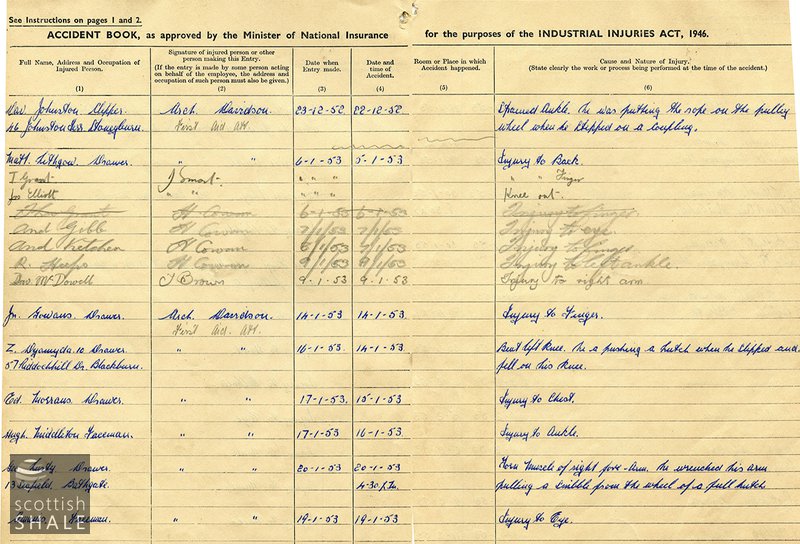 See Instructions on pages 1 and 2.
ACCIDENT BOOK, as approved by the Minister of National Insurance for the purposes of the INDUSTRIAL INJURIES ACT, 1946.
Full Name, Address and Occupation of Injured Person. (1)
Signature of injured person or other person making this Entry. (If the entry is made by some person acting on behalf of the employee, the address and occupation of such person must also be given.) (2)
Date when Entry made. (3)
Date and time of Accident. (4)
Room or Place in which Accident happened. (5)
Cause and Nature of Injury. (State clearly the work or process being performed at the time of the accident.) (6)
Johnston, Clipper. Arch. Davidson. 23-12-52. 22-12-52. Sprained Ankle. He was putting the rope on the pulley
46 Johnston Stoneyburn. First Aid Att. wheel when he slipped on a coupling.
Matt. Lithgow Drawer. " " 6-1-53 5-1-53 Injury to Back.
T Grant J Smart. " " " " " " " Finger
Jas Elliott " " Knee out.
Thos Grant H Cowan 6-1-53 6-1-53 Injury to finger.
And Gebb H Cowan 7/1/53 7/1/53 Injury to eye.
And Ketchen H Cowan 8/1/53 7/1/53 Injury to finger
R. H Cowan 9/1/53 9/1/53 Injury to left ankle.
Dav. McDowell J Brown 9-1-53 9.1.53 Injury to right arm.
Jn. Gowans Drawer. Arch. Davidson. 14-1-53 14-1-53 Injury to Finger.
First Aid. Att.
Z. Drawer. " " 16-1-53 14-1-53 Beat left Knee. He a pushing a hutch when he slipped and
57 Riddochhill Dr. Blackburn. fell on his Knee.
Drawer. " " 17-1-53. 15-1-53 Injury to Chest.
Hugh. Middleton Faceman. " " 17-1-53 16-1-53. Injury to Ankle.
Lusty Drawer. " " 20-1-53 20-1-53 Torn Muscle of right fore-Arm. He wrenched his arm
13 Bathgate. 4-30 p.m. pulling a from the wheel of a full hutch
Faceman. " " 19-1-53 19-1-53. Injury to Eye.
scottish
SHALE